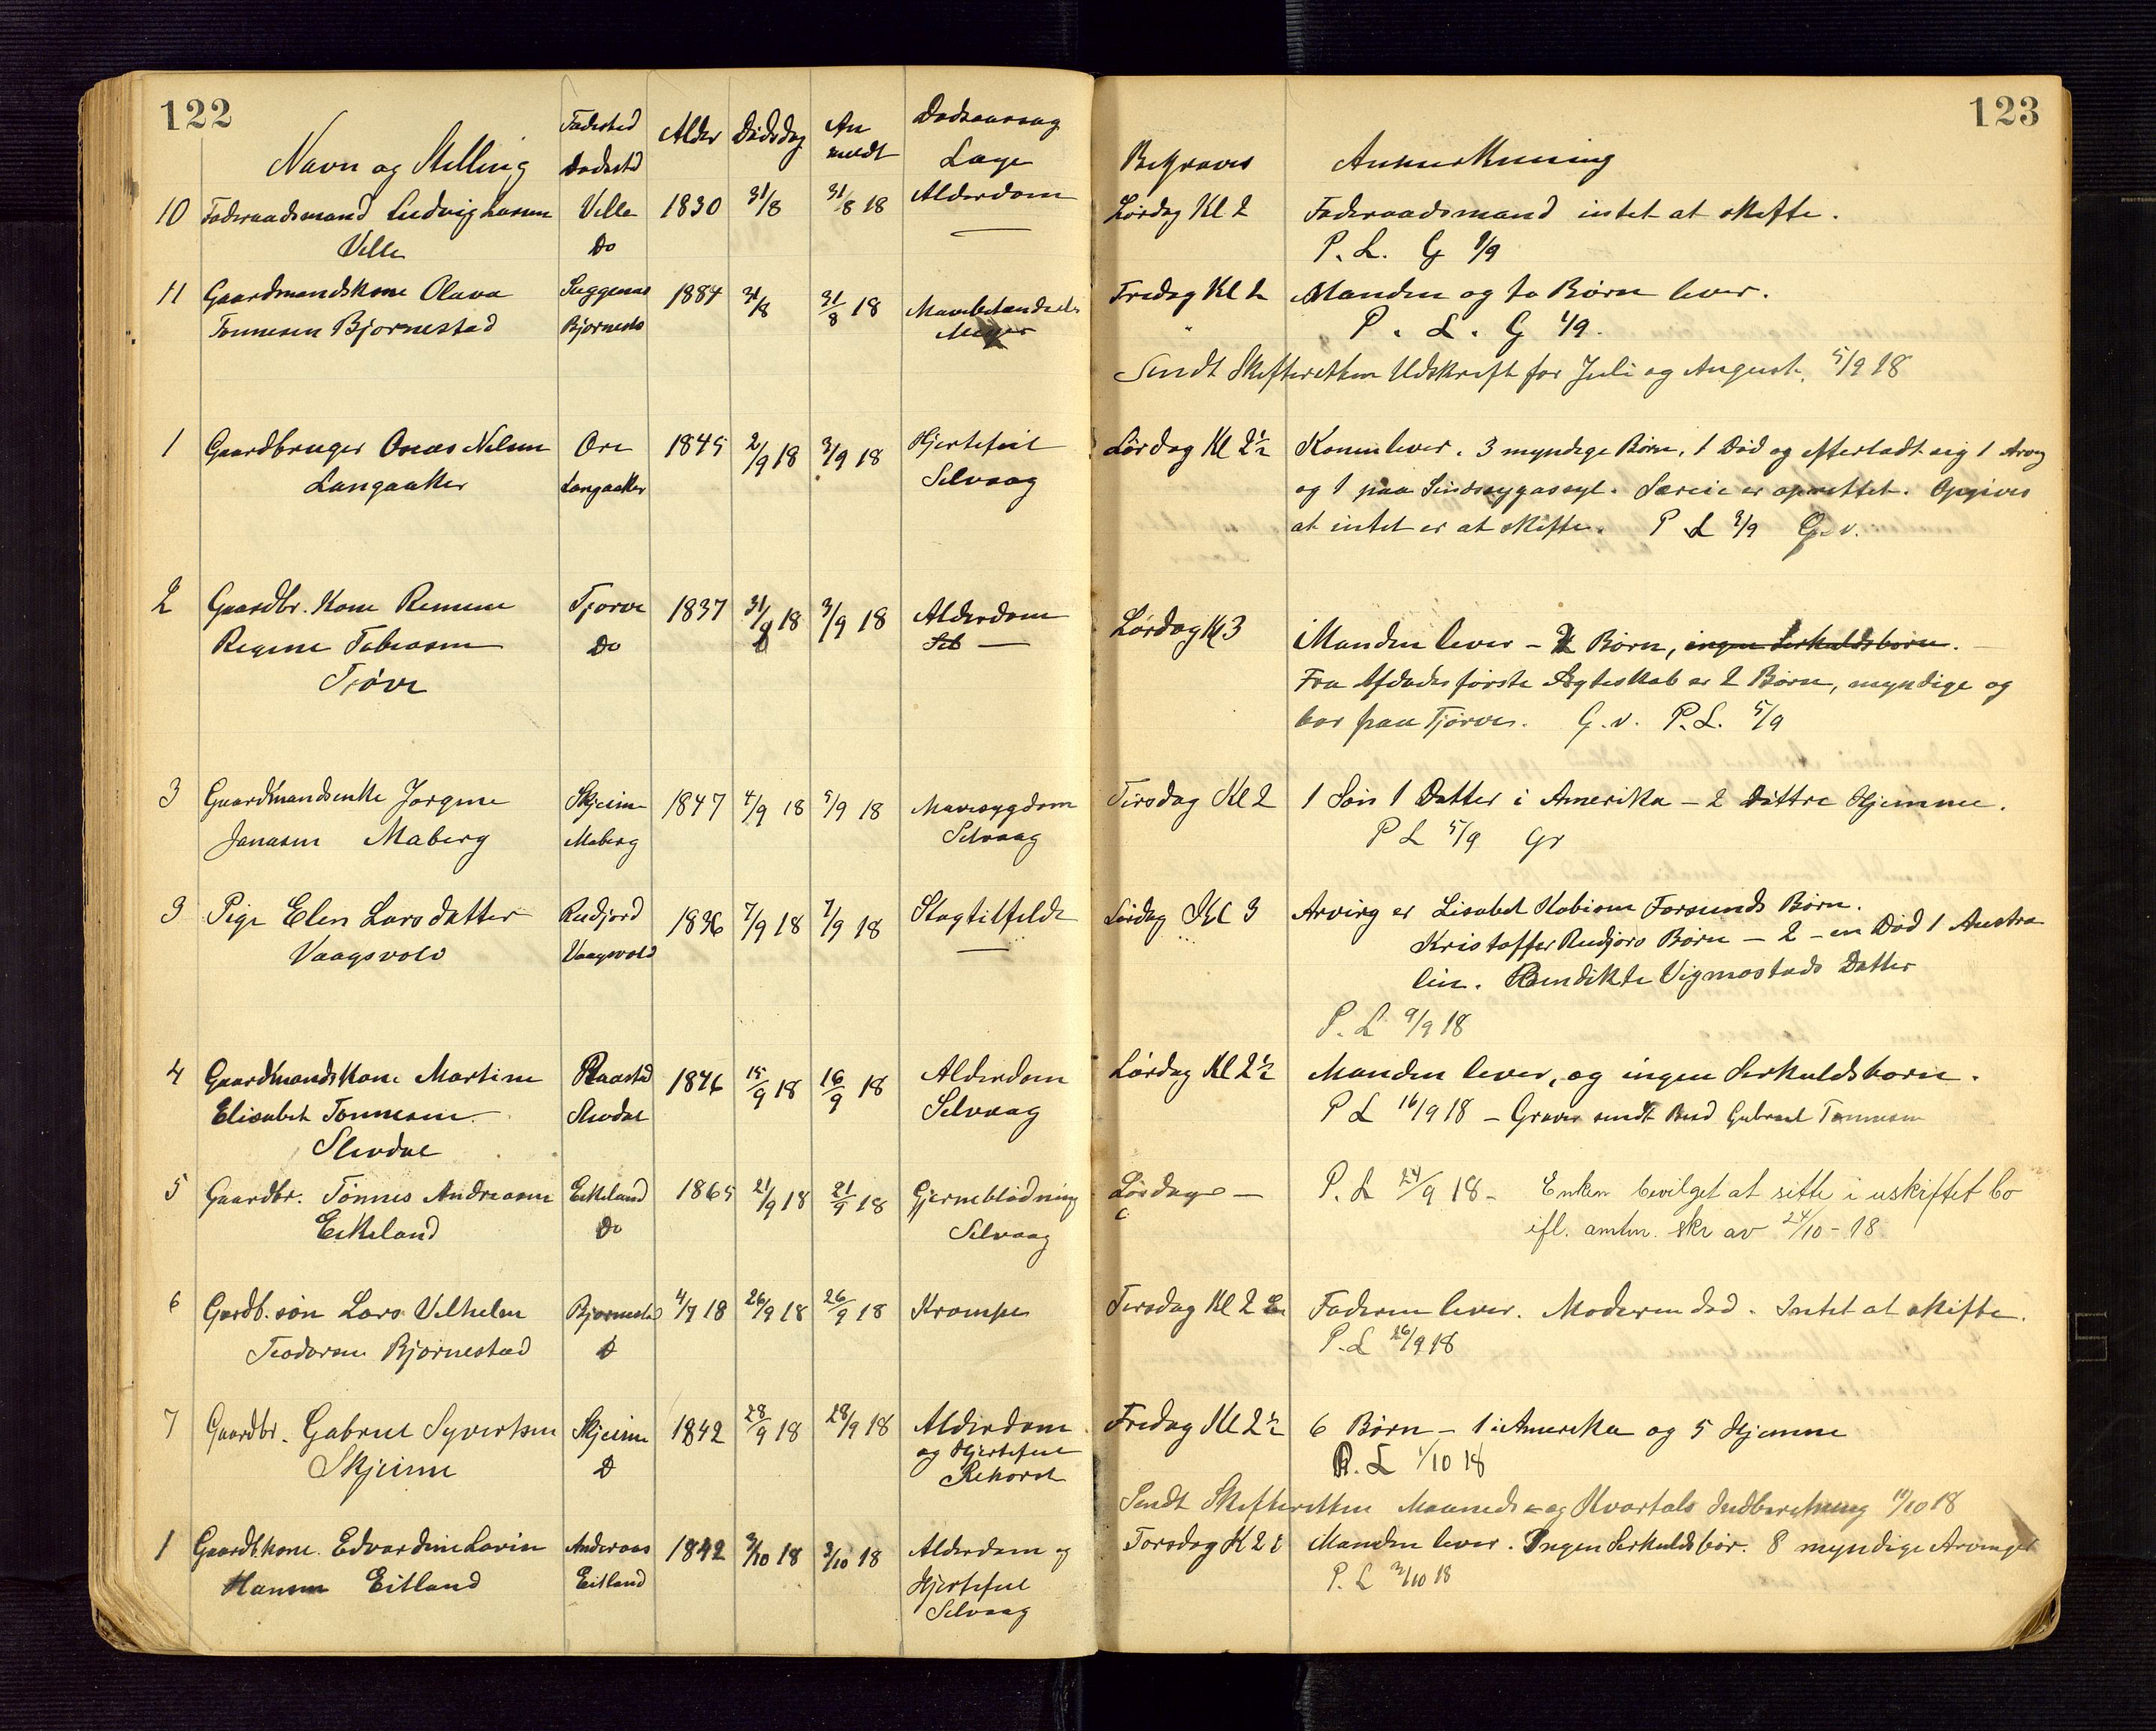 122
123
Navn og Stilling Fødested Dødssted Alder Dødsdag An meldt Dødsaarsag Læge Begraves Anmerkning
10 Føderaadsmand Ludvig Larsen Velle 1830 31/8 31/8 18 Alderdom Lørdag Kl 2 Føderaadsmand intet at skifte.
Velle Do — P. L. G
11 Gaardmandskone Olava 1884 31/8 31/8 18 Fredag Kl 2 Manden og to Børn lever.
Tønnesen Bjørnestad Bjørnestad P. L. G 1/9.
Sendt Skifteretten Udskrift for Juli og August. 5/9 18
1 Gaardbruger Onas Nilsen Ore 1845 2/9 18 3/9 18 Hjertefeil Lørdag Kl 2½ Konen lever. 3 myndige Børn, 1 Død og efterladt sig 1 Arving
Langaaker Langaaker Selvaag og 1 paa Sindssygeasyl. Særeie er oprettet. Opgives
at intet er at skifte. P L 3/9 G. v.
2 Gaardbr. Kone Tjørve 1837 31/8 18 3/9 18 Alderdom Lørdag Kl 3 Manden lever – Børn, ingen Serkuldsbørn.
Regine Tobiasen Do — Fra Afdødes første Ægteskab er 2 Børn, myndige og
Tjøve bor paa Tjørve. G. v. P. L. 5/9
3 Gaardmandsenke Jørgine Skjeime 1847 4/9 18 5/9 18 Mavesygdom Tirsdag Kl 2 1 Søn 1 Datter i Amerika – 2 Døttre Hjemme.
Jonasen Maberg Maberg Selvaag P L 5/9 Gr
3 Pige Elen Larsdatter Rudjord 1836 7/9 18 7/9 18 Slagtilfelde Lørdag Kl 3 Arving er Lisabet Kobisen Farsunds Børn.
Vaagsvold Vaagsvold — Kristoffer Rudjord Børn – 2 – en Død 1 Austra
lien. Bendikte Vigmostads Datter
P. L 9/9 18
4 Gaardmandskone Martine Raastad 1846 15/9 18 16/9 18 Alderdom Lørdag Kl 2½ Manden lever, og ingen Serkuldsbørn.
Elisabet Tønnesen Slevdal Selvaag P L 16/9 18 – Graver sendt Bud Gabriel Tønnesen
Slevdal
5 Gaardbr. Tønnes Andreasen Eikeland 1865 21/9 18 21/9 18 Hjerneblødning Lørdag — P. L 24/9 18 – Enken bevilget at sitte i uskiftet bo
Eikeland Do Selvaag ifl. amtm. skr av 24/10 – 18.
6 Gardb. søn Lars Vilhelm Bjørnestad 4/7 18 26/9 18 26/9 18 Krampe Tirsdag Kl 2 Faderen lever. Moderen død. Intet at skifte.
Teodorsen Bjørnestad D P. L 26/9 18
7 Gaardbr. Gabriel Syvertsen Skjeime 1842 28/9 18 28/9 18 Alderdom Fredag Kl 2½ 6 Børn – 1 i Amerika og 5 Hjemme
Skjeime D og Hjertefeil P. L 1/10 18
Rekorst
Sendt Skifteretten Maaneds og Kvartals Indberetning 11/10 18
1 Gaardb. kone. Edvardine Lavin Andreaas 1842 3/10 18 3/10 18 Alderdom og Torsdag K 2 Manden lever. Ingen Serkuldsbør. 8 myndige Arvinger
Hansen Eitland Eitland Hjertefeil P. L 3/10 18
Selvaag